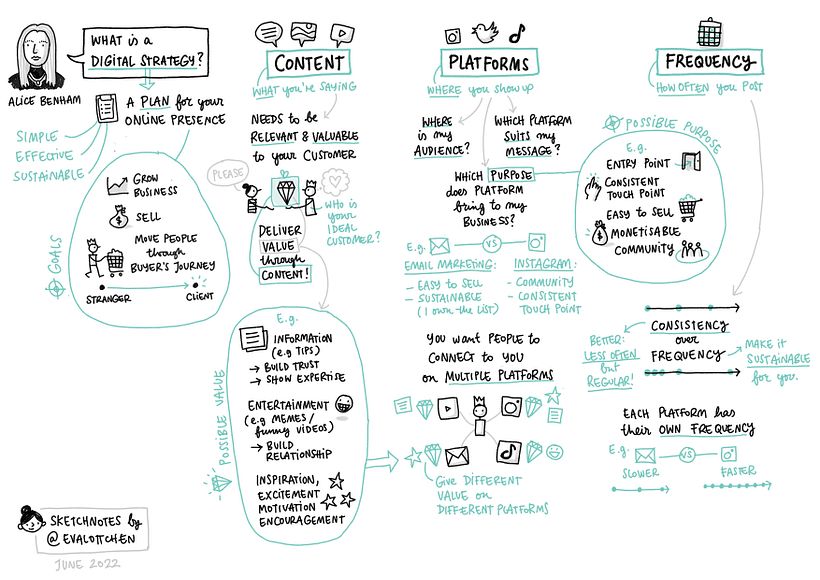 WHAT is a
DIGITAL STRATEGY?
ALICE BENHAM
A PLAN for your
ONLINE PRESENCE
SIMPLE
EFFECTIVE
SUSTAINABLE
GOALS
GROW
BUSINESS
SELL
MOVE PEOPLE
through
BUYER'S JOURNEY
STRANGER
CLIENT
SKETCHNOTES by
@EVALOTTCHEN
JUNE 2022
CONTENT
WHAT you're SAYING
NEEDS to be
RELEVANT & VALUABLE
to your CUSTOMER
PLEASE
WHO is
your
IDEAL
CUSTOMER?
DELIVER
VALUE
through
CONTENT!
POSSIBLE VALUE
E.g.
INFORMATION
(e.g TIPS)
→ BUILD TRUST
→ SHOW EXPERTISE
ENTERTAINMENT
(e.g MEMES/
funny VIDEOS)
→ BUILD
RELATIONSHIP
INSPIRATION,
EXCITEMENT
MOTIVATION
ENCOURAGEMENT
PLATFORMS
WHERE you show up
WHERE
is my
AUDIENCE?
WHICH PLATFORM
SUITS my
MESSAGE?
WHICH PURPOSE
does PLATFORM
bring to my
BUSINESS?
E.g.
VS
EMAIL MARKETING:
– EASY to SELL
– SUSTAINABLE
(I own the LIST)
INSTAGRAM:
– COMMUNITY
– CONSISTENT
TOUCH POINT
YOU WANT PEOPLE to
CONNECT to YOU
on MULTIPLE PLATFORMS
GIVE DIFFERENT
VALUE on
DIFFERENT PLATFORMS
FREQUENCY
HOW OFTEN you POST
POSSIBLE PURPOSE
E.g.
ENTRY POINT
CONSISTENT
TOUCH POINT
EASY to SELL
MONETISABLE
COMMUNITY
CONSISTENCY
over
FREQUENCY
BETTER:
LESS OFTEN
but
REGULAR!
MAKE it
SUSTAINABLE
for you.
EACH PLATFORM has
their OWN FREQUENCY
E.g.
VS
SLOWER
FASTER